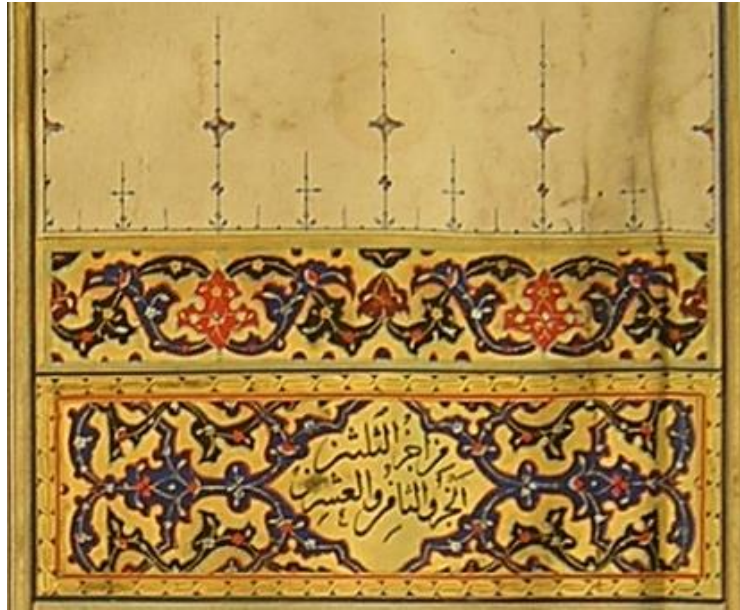 من اجزا الثلثين
الجزو الثامن والعشرين